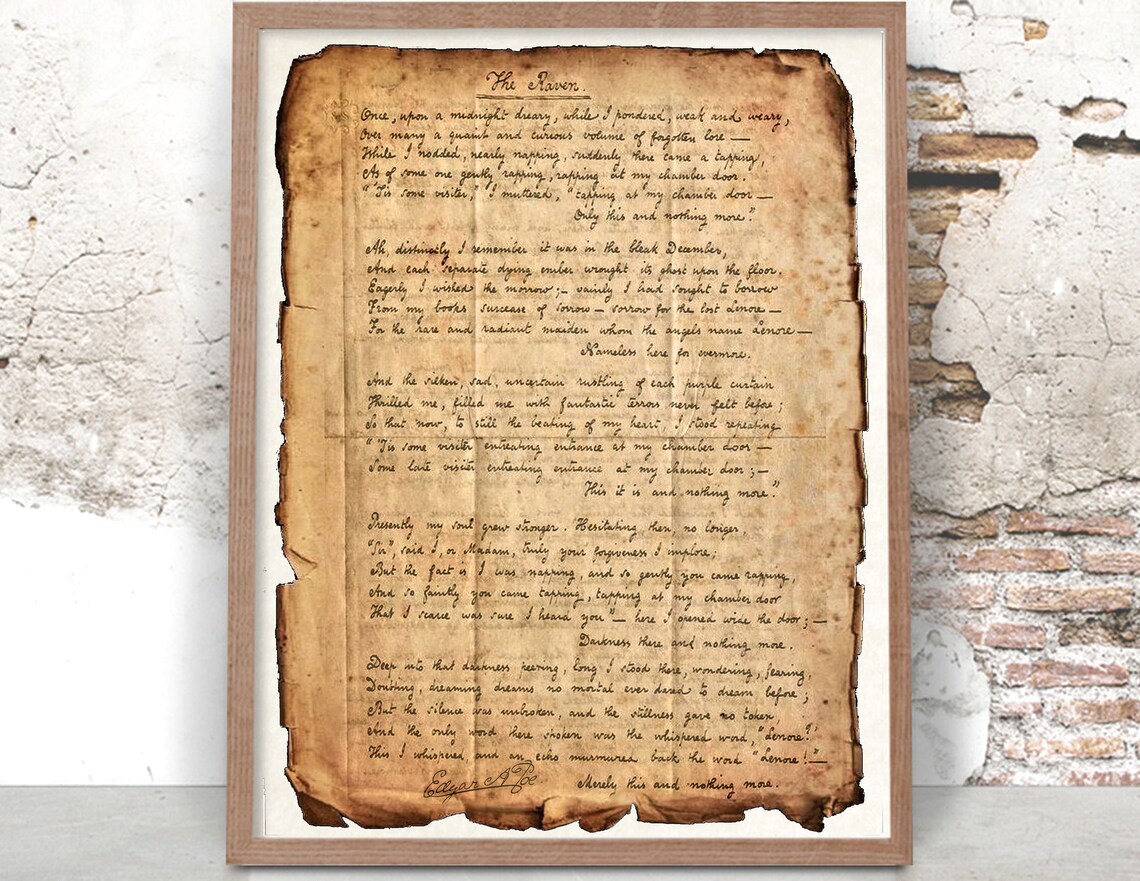 The Raven.
Once, upon a midnight dreary, while I pondered, weak and weary,
Over many a quaint and curious volume of forgotten lore —
While I nodded, nearly napping, suddenly there came a tapping,
As of some one gently rapping, rapping at my chamber door.
"'Tis some visiter," I muttered, "tapping at my chamber door —
Only this and nothing more."
Ah, distinctly I remember it was in the bleak December,
And each separate dying ember wrought its ghost upon the floor.
Eagerly I wished the morrow; — vainly I had sought to borrow
From my books surcease of sorrow — sorrow for the lost Lenore —
For the rare and radiant maiden whom the angels name Lenore —
Nameless here for evermore.
And the silken, sad, uncertain rustling of each purple curtain
Thrilled me, filled me with fantastic terrors never felt before;
So that now, to still the beating of my heart, I stood repeating
"'Tis some visiter entreating entrance at my chamber door —
Some late visiter entreating entrance at my chamber door; —
This it is and nothing more."
Presently my soul grew stronger. Hesitating, then, no longer,
"Sir", said I, or Madam, truly your forgiveness I implore;
But the fact is I was napping, and so gently you came rapping,
And so faintly you came tapping, tapping at my chamber door
That I scarce was sure I heard you" — here I opened wide the door; —
Darkness there and nothing more.
Deep into that darkness peering, long I stood there, wondering, fearing,
Doubting, dreaming dreams no mortal ever dared to dream before;
But the silence was unbroken, and the stillness gave no token,
And the only word there spoken was the whispered word, "Lenore!"
This I whispered and an echo murmured back the word "Lenore!" —
Merely this and nothing more.
Edgar A Poe